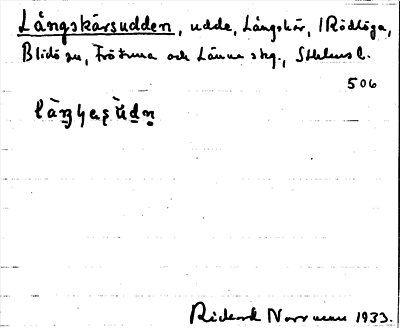 Långskärsudden, udde, Långskär, /Rödlöga,
Blidö sn, Frötuna och Länna skg., Sthlms l.
506
Rickard Norrman 1933.